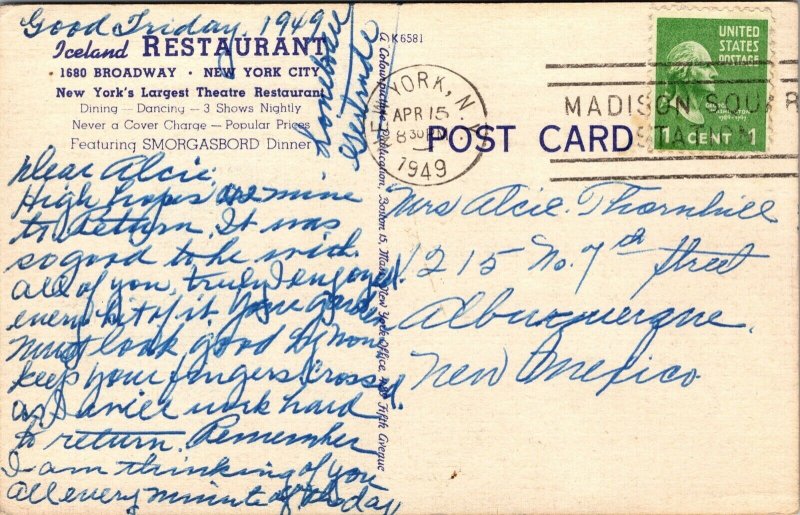 Good Friday, 1949
Iceland RESTAURANT
1680 BROADWAY · NEW YORK CITY
New York's Largest Theatre Restaurant
Dining — Dancing — 3 Shows Nightly
Never a Cover Charge — Popular Prices
Featuring SMORGASBORD Dinner
Dear Alcie.
High hopes are mine
to return. It was
so good to be with
all of you, truly I enjoyed
every bit of it. Your garden
must look good by now
keep your fingers crossed.
as I will work hard
to return. Remember
I am thinking of you
all every minute of the day
Gertrude
K6581
A Colourpicture Publication, Boston 15, Mass. New York Office, Fifth Avenue
YORK, N.Y.
APR 15
8 30 PM
1949
MADISON SQUAR
STATION
POST CARD
UNITED
STATES
POSTAGE
1 CENT 1
Mrs Alcie. Thornhill
1215 No. 7th Street
Albuquerque,
New Mexico.